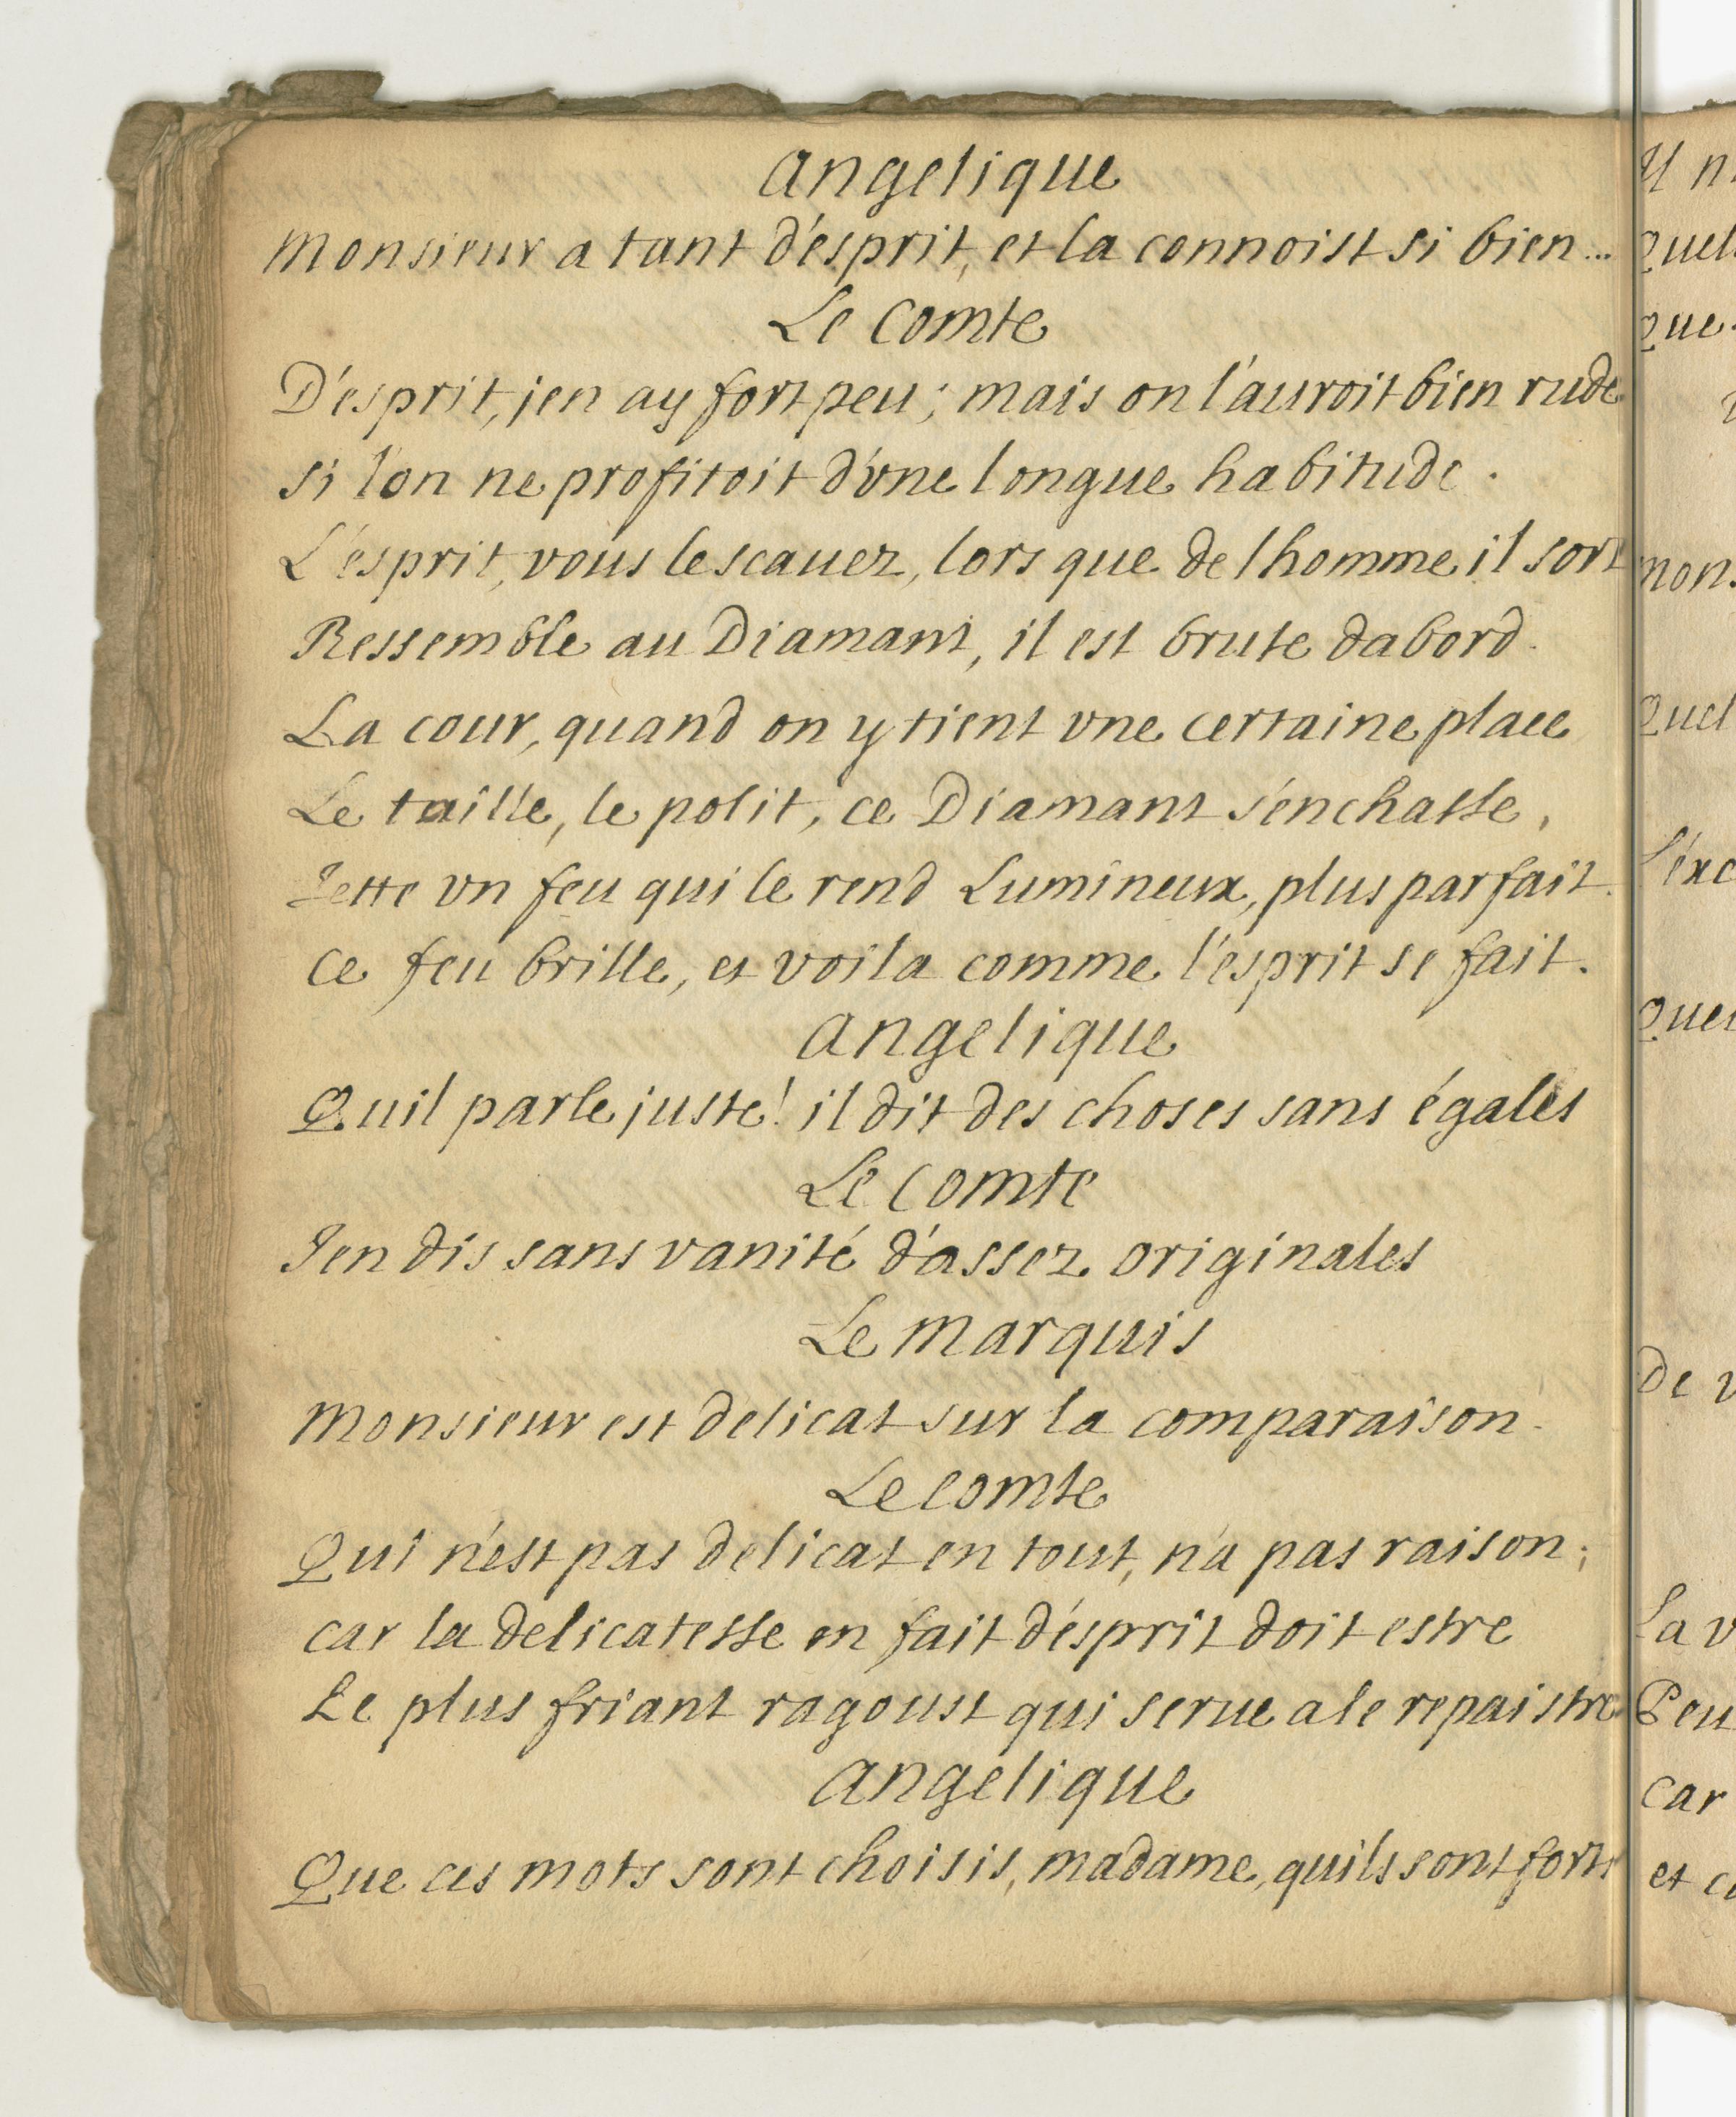 Angelique
Monsieur a tant d'ésprit, et la connoist si bien...
Le Comte
D'ésprit, jen ay fort peu; mais on l'auroit bien rude
si lon ne profitoit d'vne longue habitude.
L'ésprit, vous le scauez, lors que de lhomme il sort
Ressemble au Diamant, il est brute dabord.
La cour, quand on y tient vne certaine place
Le taille, le polit, ce Diamant s'énchasse,
Jette vn feu qui le rend Lumineux, plus parfait.
Ce feu brille, et voila comme l'ésprit se fait.
Angelique
Quil parle juste! il dit des choses sans égales
Le Comte
Jen dis sans vanité d'assez originales
Le Marquis
Monsieur est delicat sur la comparaison.
Le Comte
Qui n'est pas delicat en tout, n'a pas raison;
car la delicatesse en fait d'ésprit doit estre
Le plus friant ragoust qui serue a le repaistre
Angelique
Que ces mots sont choisis, madame, quils sont forts